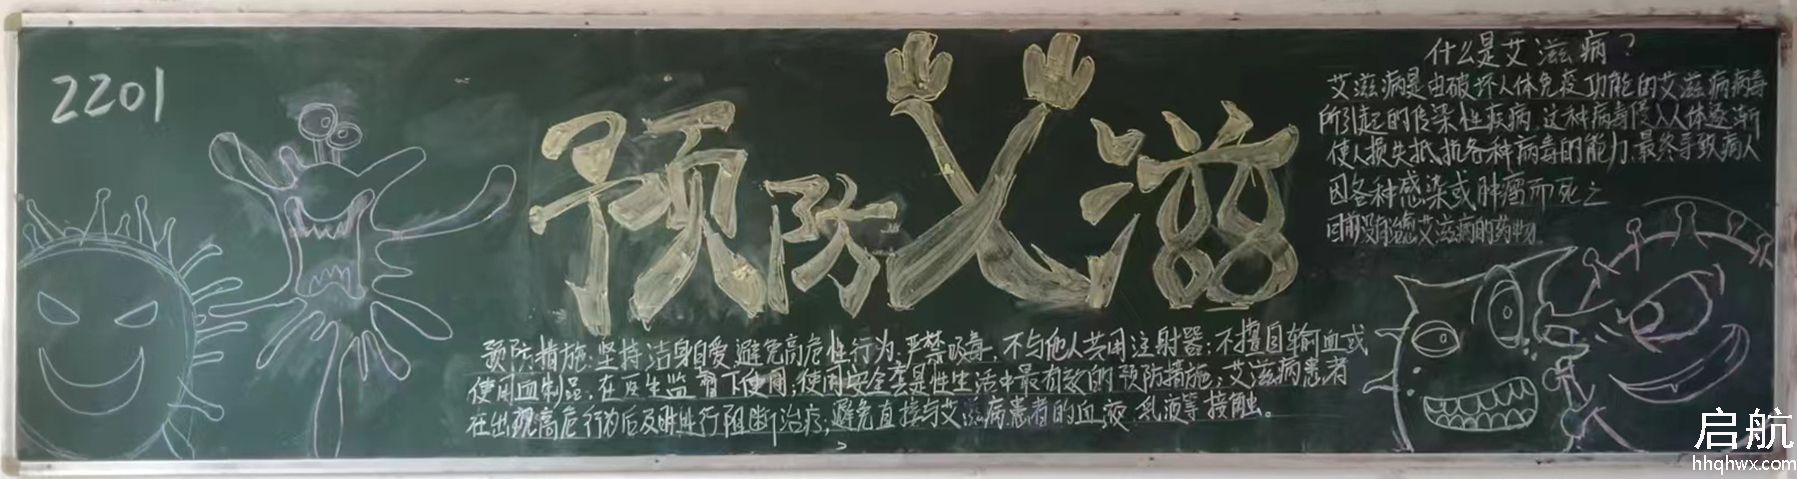 2201
预防艾滋
什么是艾滋病?
艾滋病是由破坏人体免疫功能的艾滋病病毒
所引起的传染性疾病,这种病毒侵入人体逐渐
使人损失抵抗各种病毒的能力,最终导致病人
因各种感染或肿瘤而死之
目前没有治愈艾滋病的药物
预防措施:坚持洁身自爱,避免高危性行为,严禁吸毒,不与他人共用注射器;不擅自输血或
使用血制品,在医生监督下使用;使用安全套是性生活中最有效的预防措施;艾滋病患者
在出现高危行为后及时进行阻断治疗;避免直接与艾滋病患者的血液、乳液等接触。
启航
hhqhwx.com